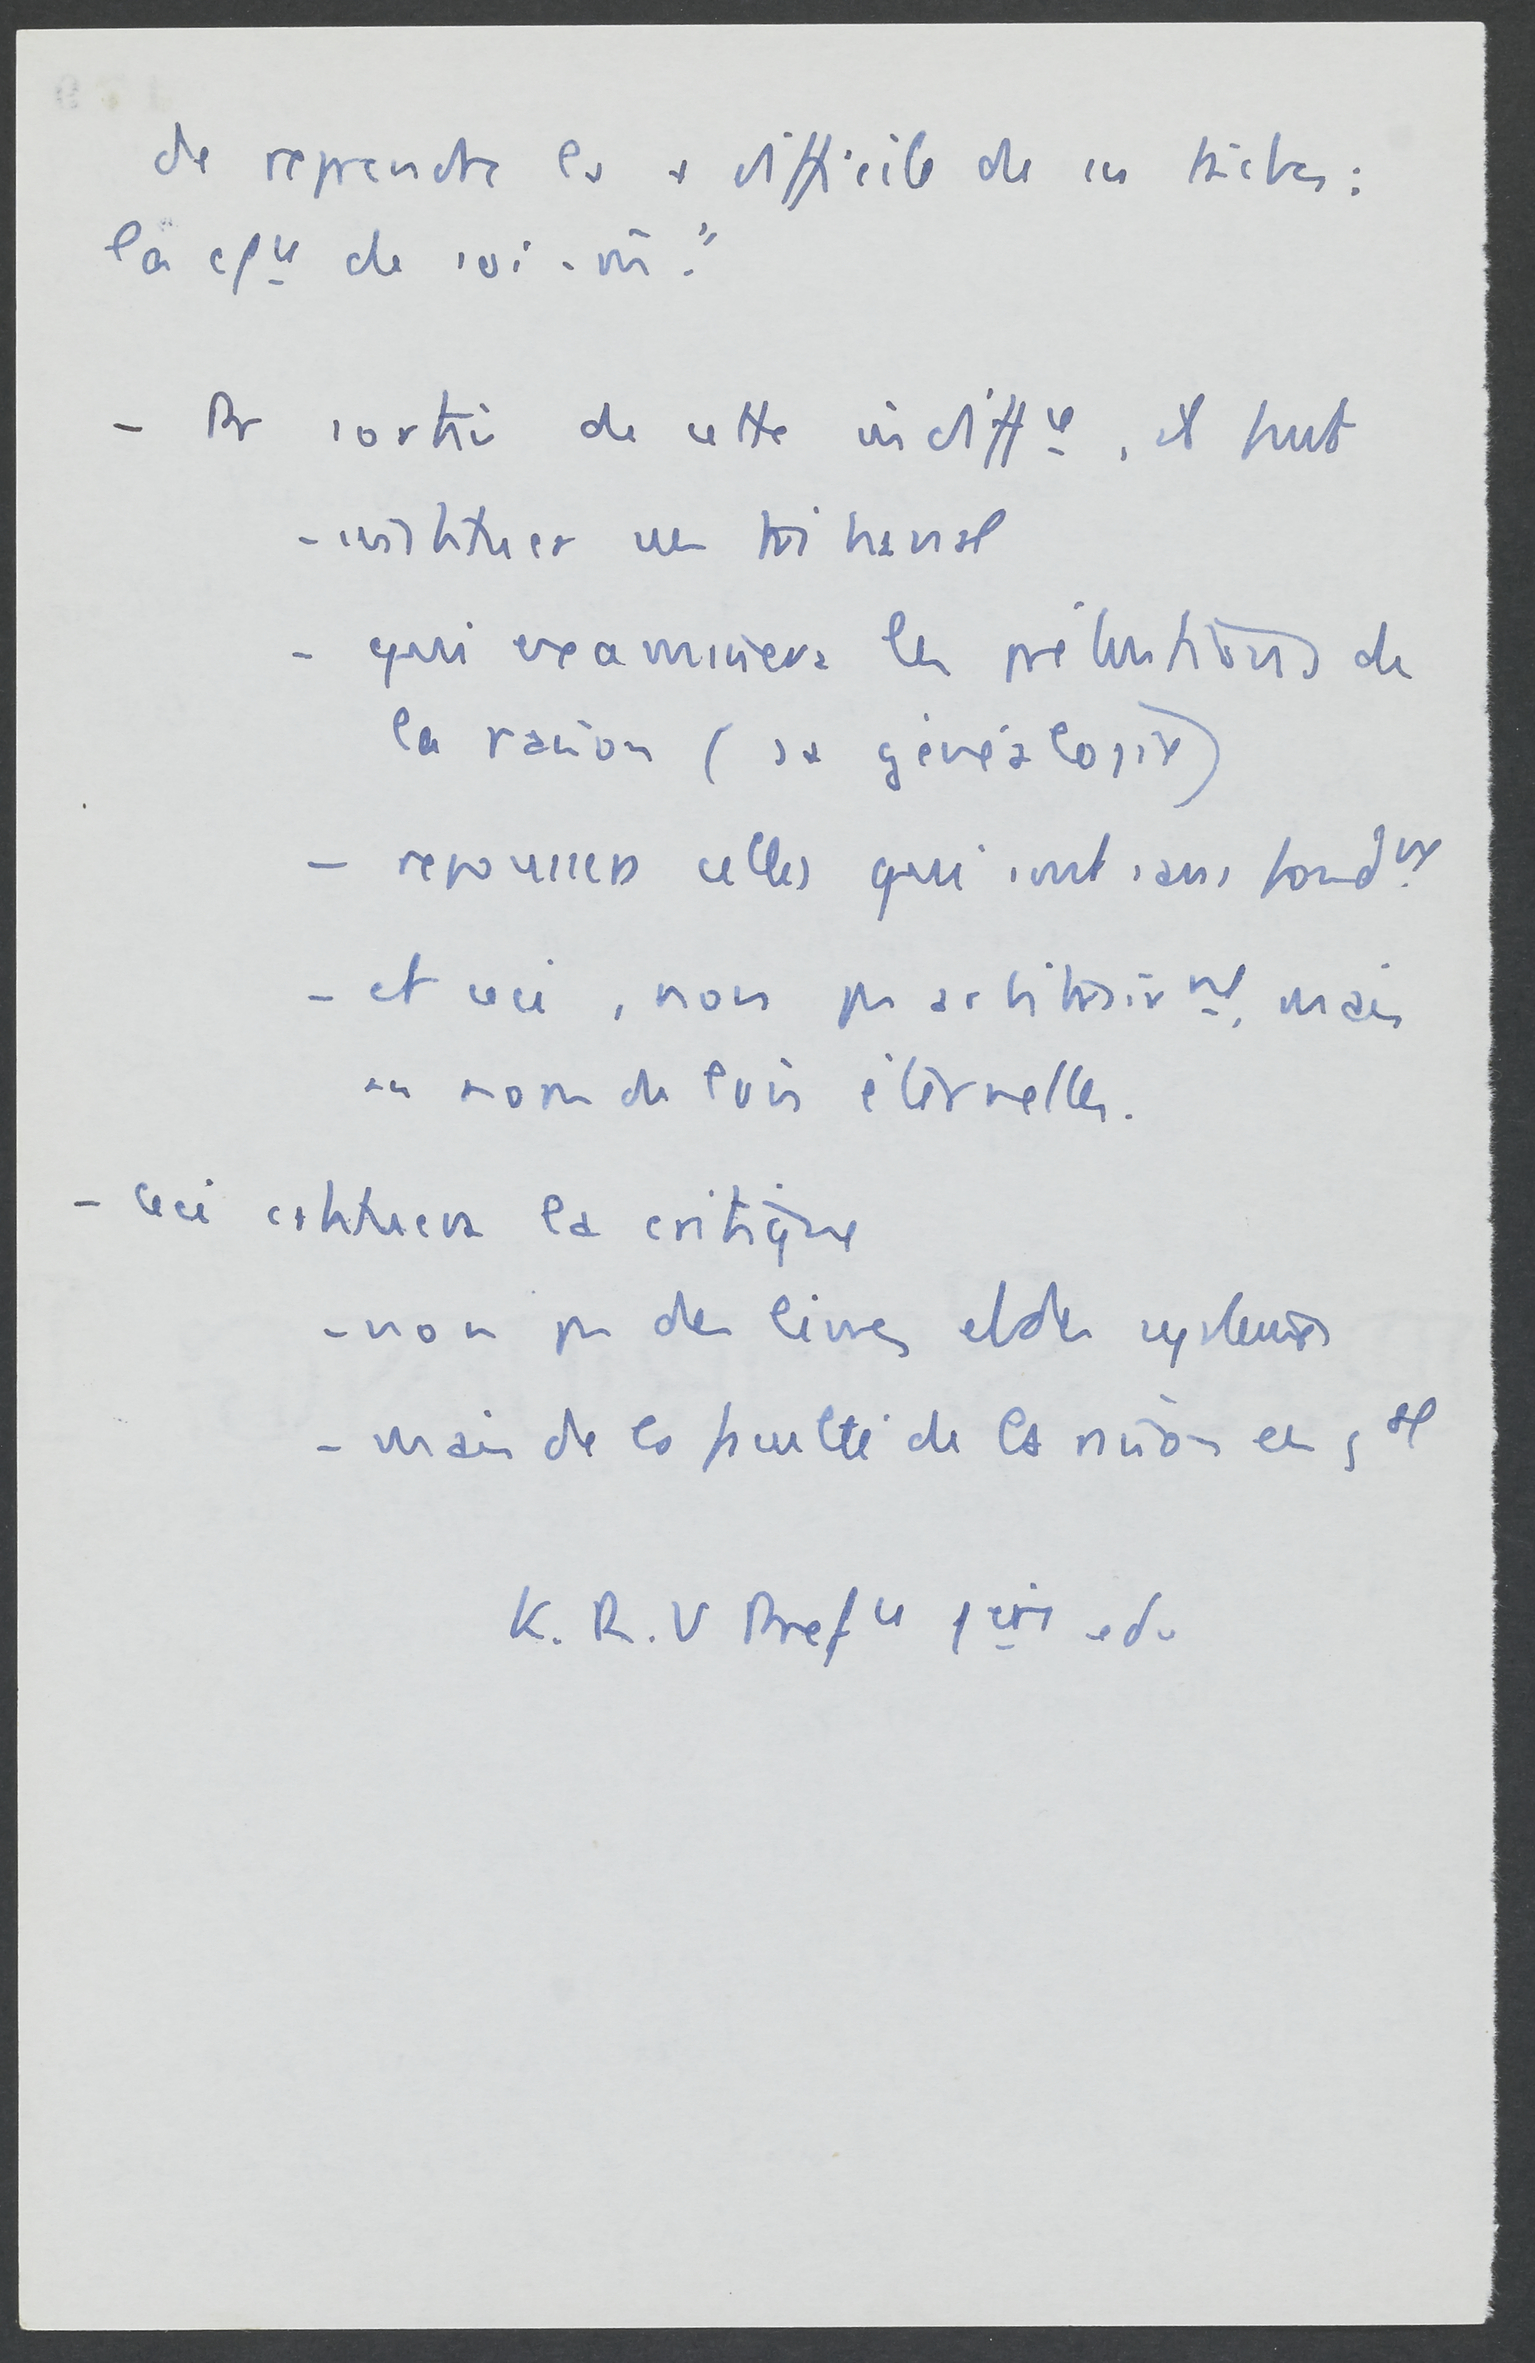 de reprendre la + difficile de ses tâches :
la c/ce de soi-m̄."
- Pr sortir de cette indiffce, il faut
- instituer un tribunal
- qui examinera les prétentions de
la raison (sa généalogie)
- repousser celles qui sont sans fondt
- et ceci, non pas arbitrairemt, mais
au nom de lois éternelles.
- Ceci c/stituera la critique
- non pas des livres et des systèmes
- mais de la faculté de la raison en gal
K. R. V Prefce 1ère ed.